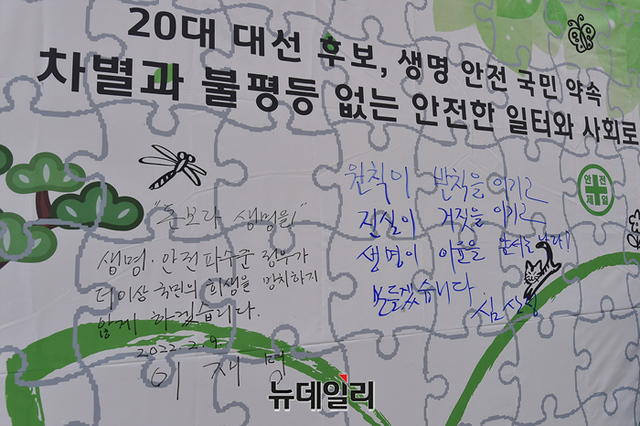 20대 대선 후보, 생명 안전 국민 약속
차별과 불평등 없는 안전한 일터와 사회로
"돈보다 생명을!"
생명·안전파수꾼 정부가
더이상 국민의 희생을 방치하지
않게 하겠습니다.
2022. 2. 9.
이재명
원칙이 반칙을 이기고
진실이 거짓을 이기고
생명이 이윤을
만들겠습니다
심상정
안전
제일
뉴데일리